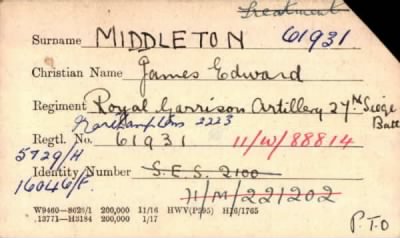 Treatment
Surname MIDDLETON 61931
Christian Name James Edward
Regiment Royal Garrison Artillery 27th Siege Batt
Northamptons 2223
Regtl. No. 61931 11/W/88814
5729/H
Identity Number S.E.S. 2100
16046/F.
H/M/221202
W9460—8628/1 200,000 11/16 HWV(P295) H16/1765
13771—H3184 200,000 1/17
P.T.O